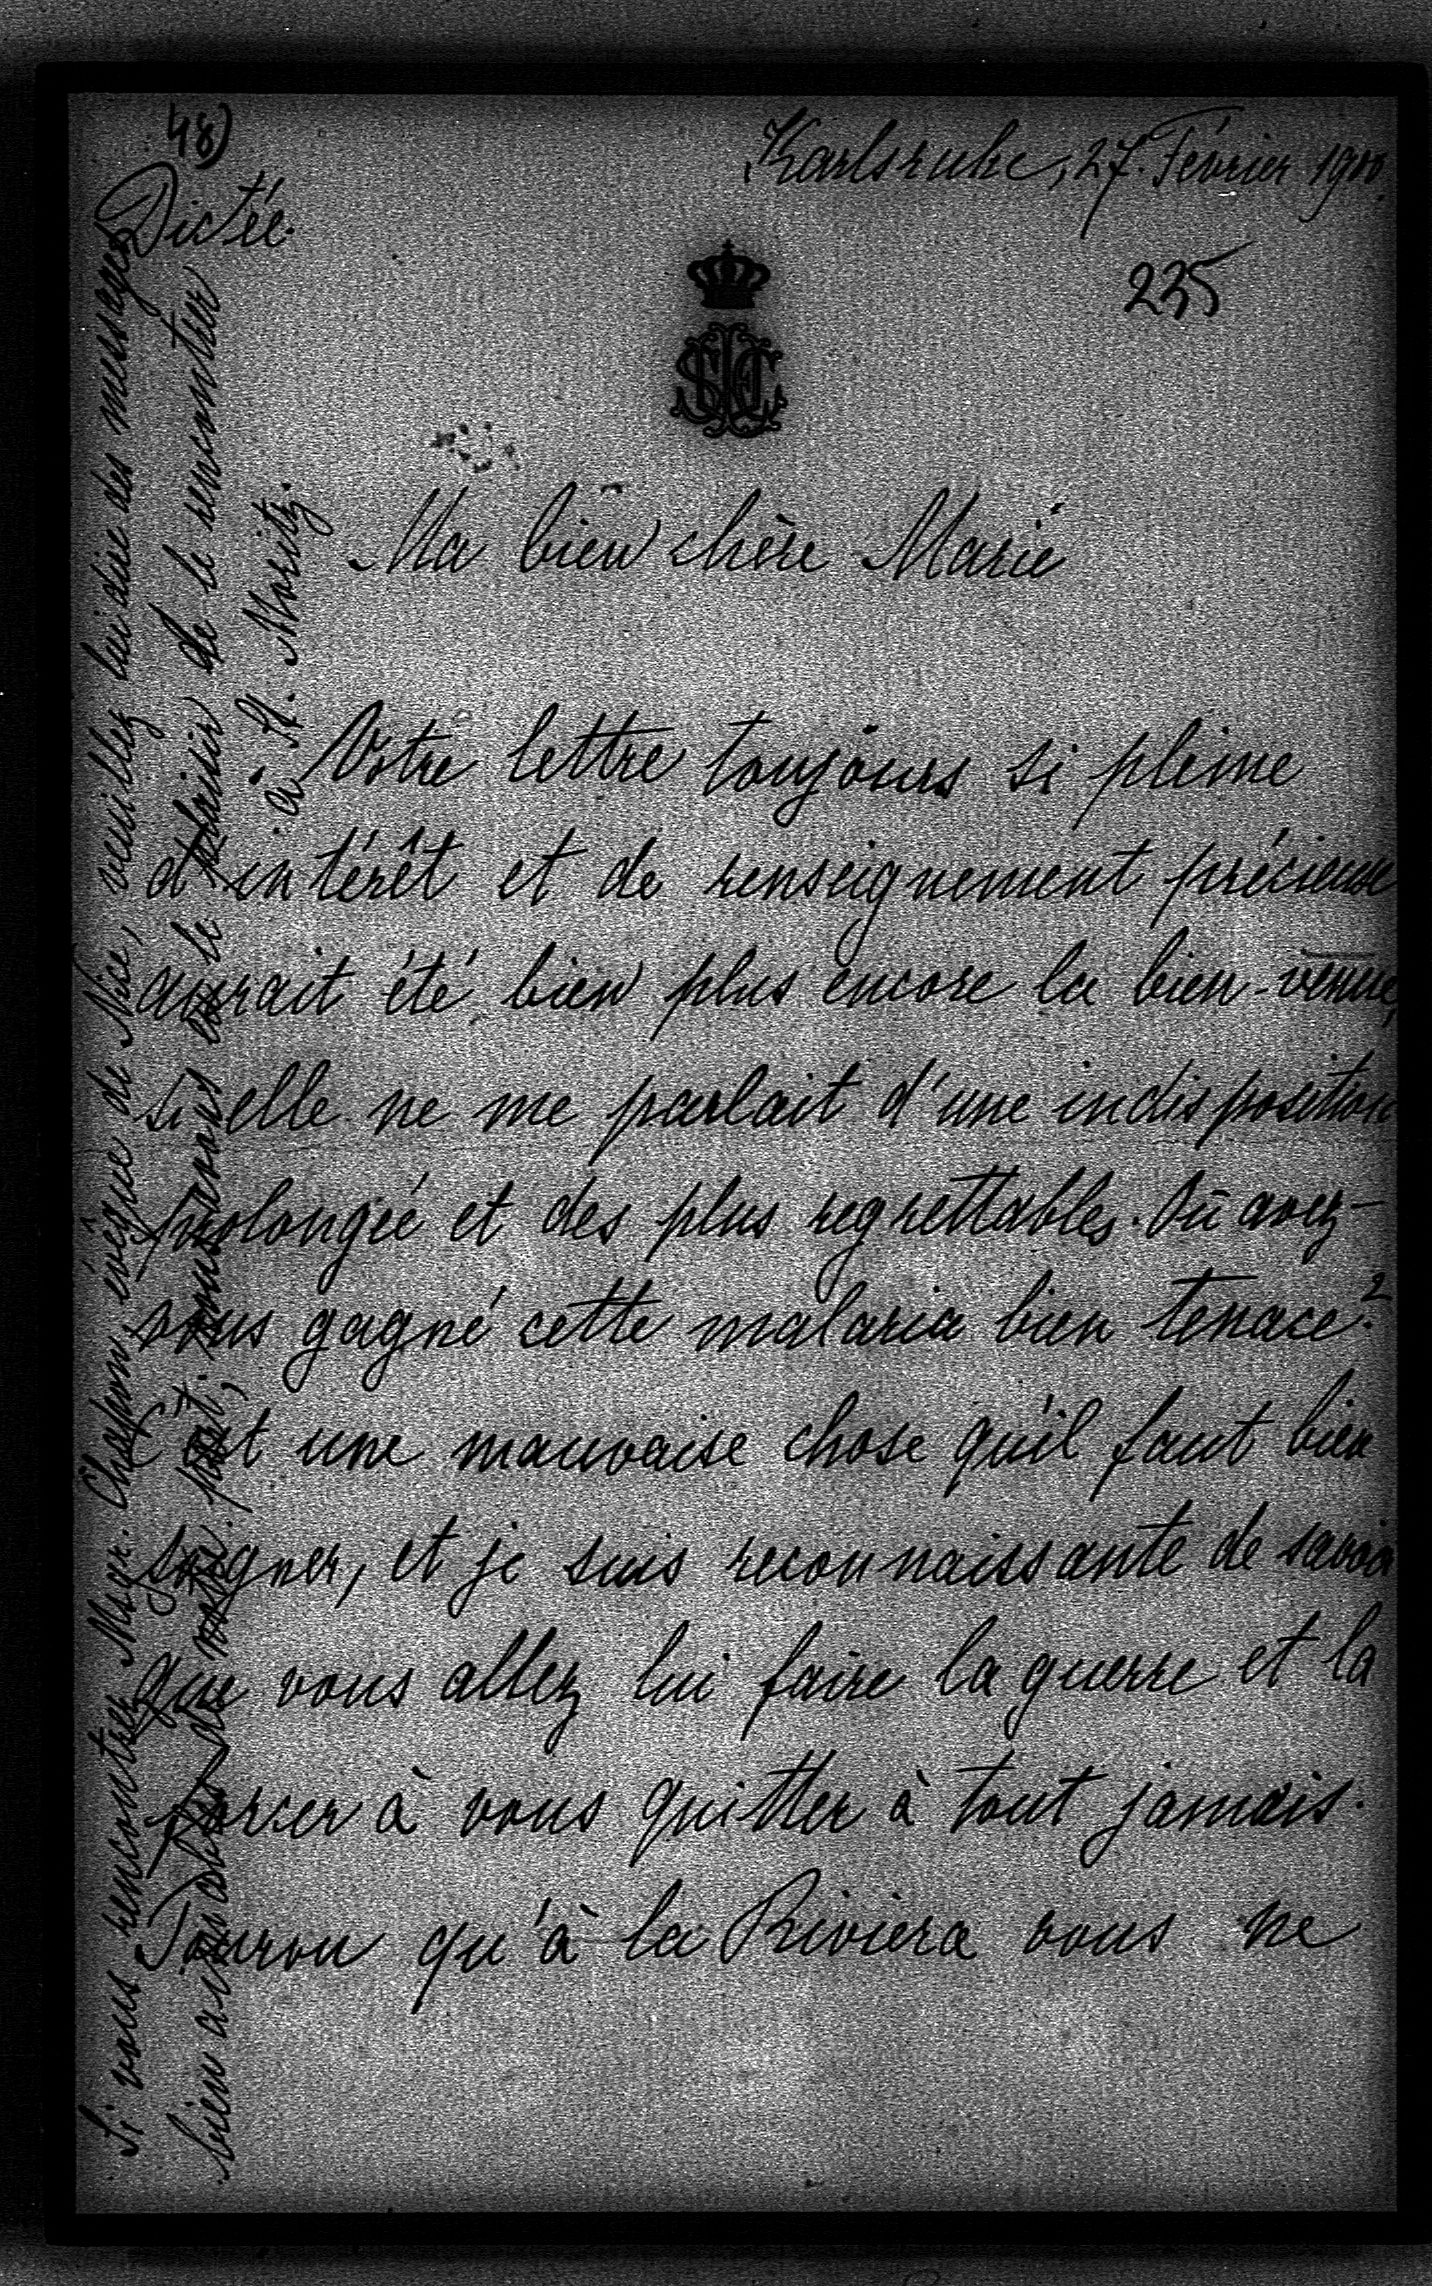 48)
Karlsruhe, 27. Février 1900.
Dictée.
235
Ma bien chère Marie
Votre lettre toujours si pleine
d'intérêt et de renseignement précieuse
aurait été bien plus encore la bien-venue,
si elle ne me parlait d'une indisposition
prolongée et des plus regrettables. Où avez-
vous gagné cette malaria bien tenace?
C'est une mauvaise chose qu'il faut bien
soigner, et je suis reconnaissante de savoir
que vous allez lui faire la guerre et la
forcer à vous quitter à tout jamais.
Pourvu qu'à la Riviera vous ne
Si vous rencontrez Mgr. Chapon, évêque de Nice, veuillez lui dire des messages
bien aimables de notre part, nous avons eu le plaisir de le rencontrer
à St. Moritz.